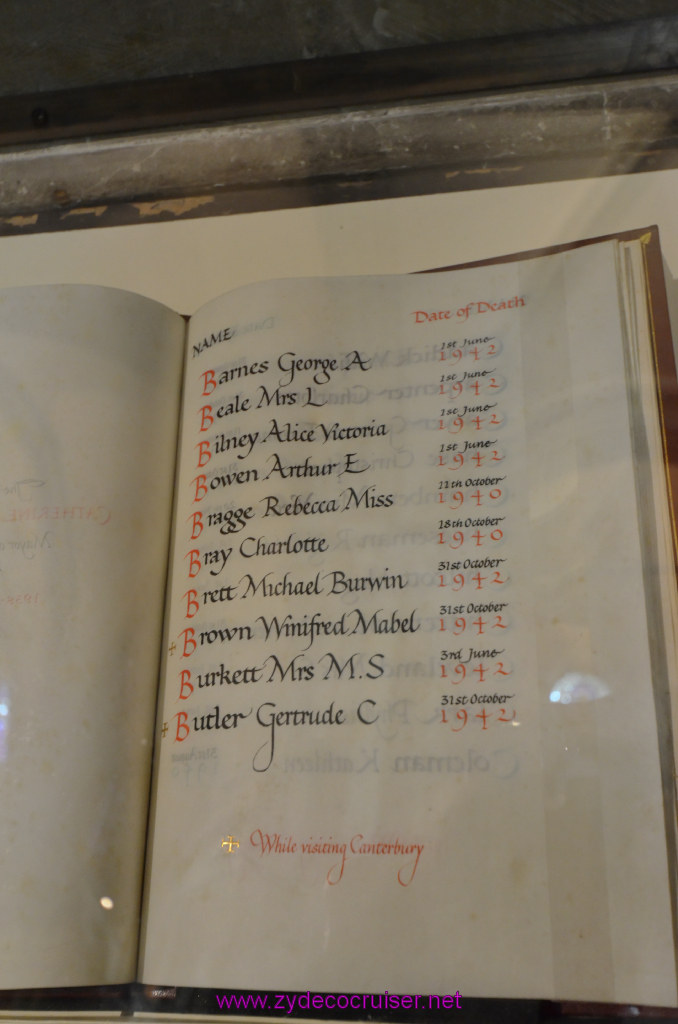 NAME Date of Death
Barnes George A 1st June 1942
Beale Mrs L 1st June 1942
Bilney Alice Victoria 1st June 1942
Bowen Arthur E 1st June 1942
Bragge Rebecca Miss 11th October 1940
Bray Charlotte 18th October 1940
Brett Michael Burwin 31st October 1942
+ Brown Winifred Mabel 31st October 1942
Burkett Mrs M.S 3rd June 1942
+ Butler Gertrude C 31st October 1942
+ While visiting Canterbury
www.zydecocruiser.net